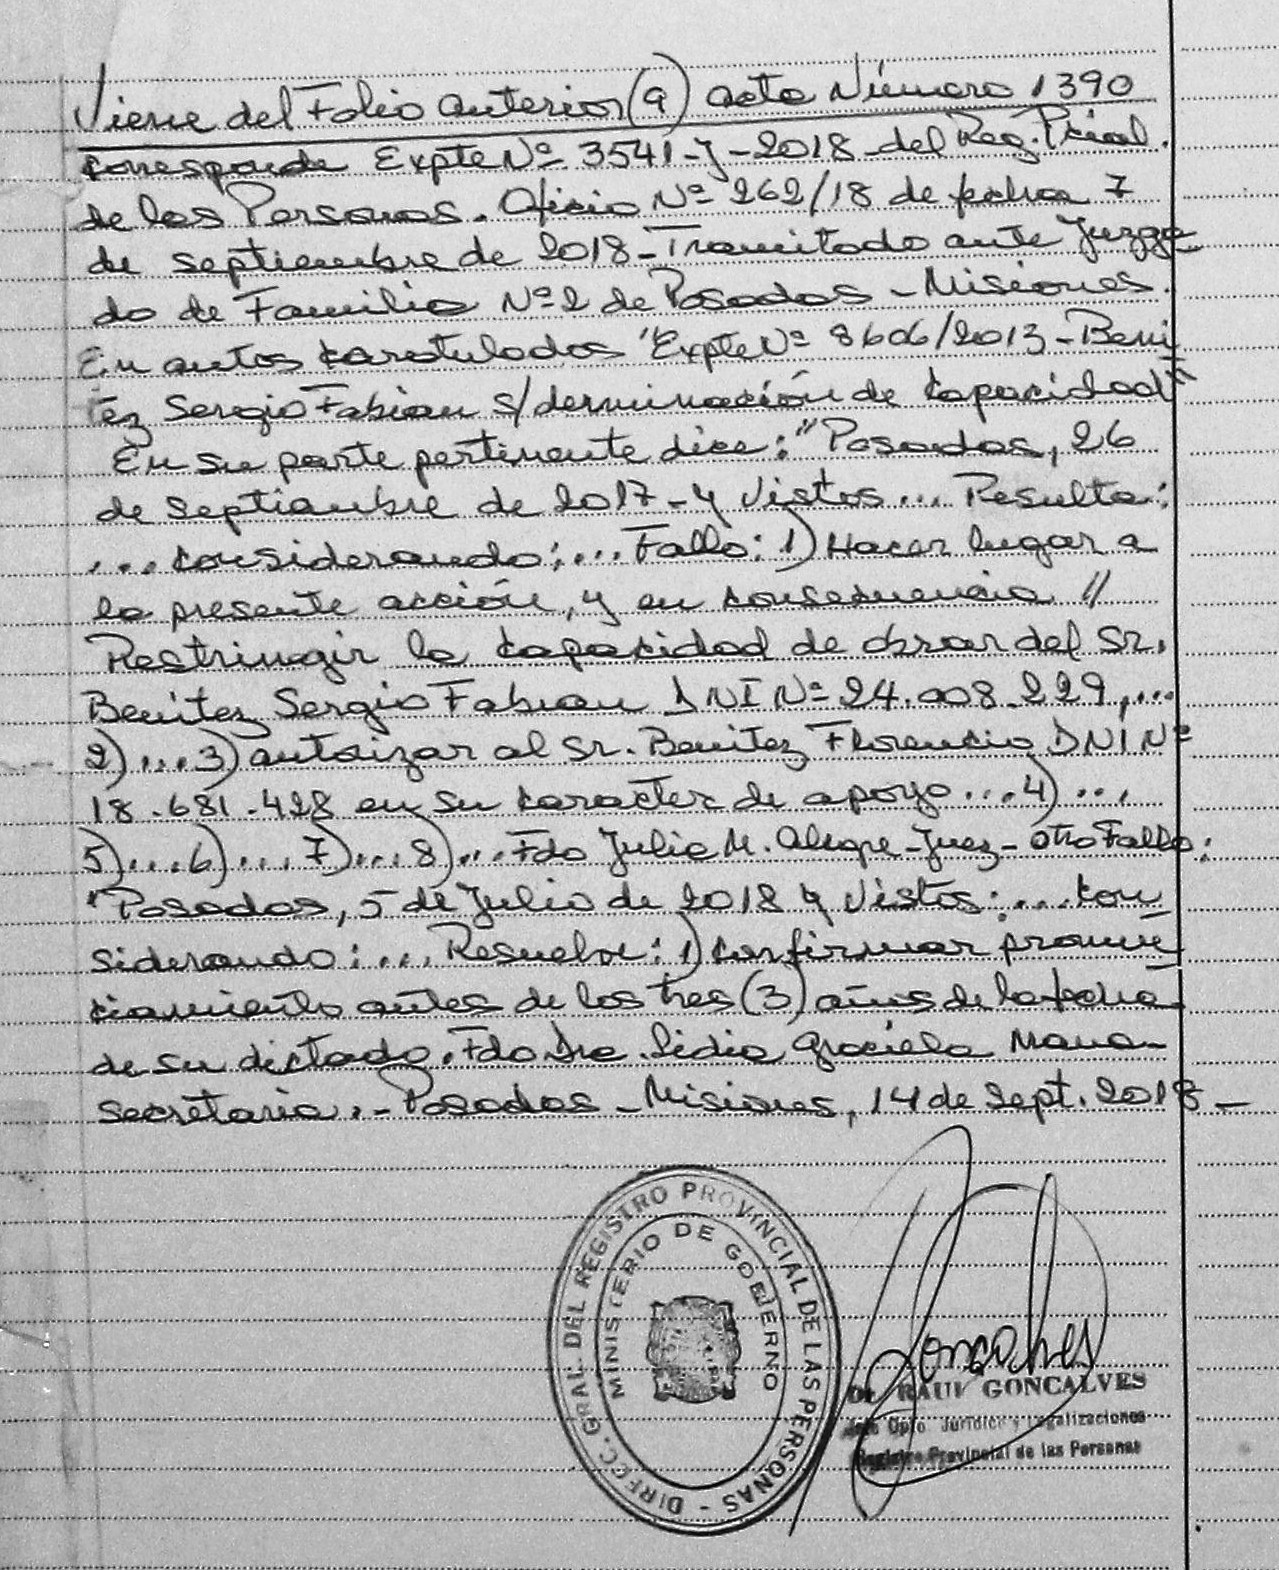 Viene del Folio anterior (9) acta Número 1390
corresponde Expte Nº 3541-J-2018-del Reg. Pcial.
de las Personas. Oficio Nº 262/18 de fecha 7
de septiembre de 2018-Tramitado ante Juzga
do de Familia Nº 2 de Posadas - Misiones.
En autos caratulados "Expte Nº 8606/2013-Beni
tez Sergio Fabian s/derminación de capacidad"
En su parte pertinente dice: "Posadas, 26
de septiembre de 2017-y vistos... Resulta:
...considerando:...Fallo: 1) Hacer lugar a
la presente acción, y en consecuencia //
Restringir la capacidad de obrar del Sr.
Benitez Sergio Fabian DNI Nº 24.008.229,...
2)...3) autorizar al Sr. Benitez Florencio DNI Nº
18.681.428 en su caracter de apoyo...4)...
5)...6)...7)...8)...Fdo Julia M. Alegre-Juez-otro Fallo:
"Posadas, 5 de Julio de 2018 y vistos:...con
siderando:...Resuelvo: 1) confirmar pronun
ciamiento antes de los tres (3) años de la fecha
de su dictado. Fdo Dra. Lidia Graciela Mana-
secretaria.- Posadas - Misiones, 14 de Sept. 2018-
DIRECC. GRAL. DEL REGISTRO PROVINCIAL DE LAS PERSONAS -
MINISTERIO DE GOBIERNO
Goncalves
Dr. RAUL GONCALVES
Jefe Dpto Jurídico y Legalizaciones
Registro Provincial de las Personas